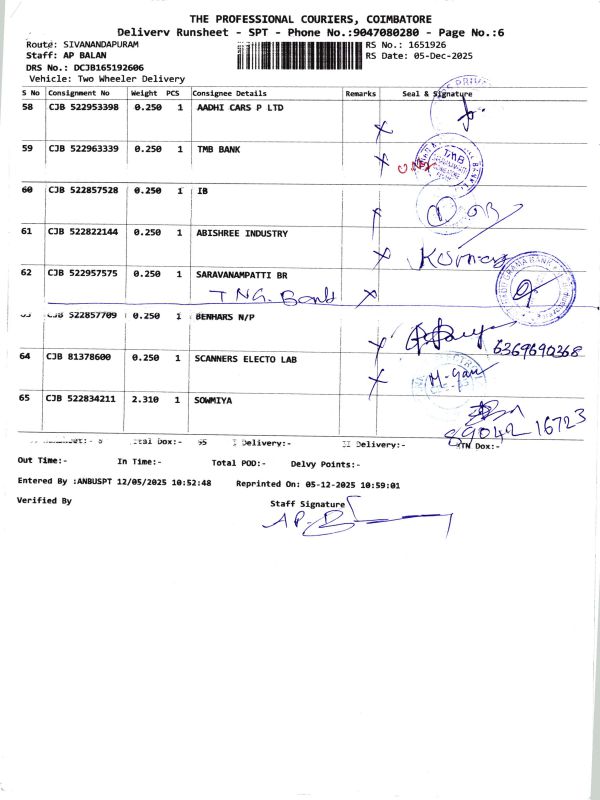 THE PROFESSIONAL COURIERS, COIMBATORE
Delivery Runsheet - SPT - Phone No.:9047080280 - Page No.:6
Route: SIVANANDAPURAM
RS No.: 1651926
Staff: AP BALAN
RS Date: 05-Dec-2025
DRS No.: DCJB165192606
Vehicle: Two Wheeler Delivery
S No Consignment No Weight PCS Consignee Details Remarks Seal & Signature
58 CJB 522953398 0.250 1 AADHI CARS P LTD
59 CJB 522963339 0.250 1 TMB BANK
TMB
60 CJB 522857528 0.250 1 IB
61 CJB 522822144 0.250 1 ABISHREE INDUSTRY
Kumar
62 CJB 522957575 0.250 1 SARAVANAMPATTI BR
TNG. Bank
CJB 522857709 0.250 1 BENHARS N/P
6369690368
64 CJB 81378600 0.250 1 SCANNERS ELECTO LAB
65 CJB 522834211 2.310 1 SOWMIYA
89042 16723
I Delivery:- II Delivery:- RTN Dox:-
Out Time:- In Time:- Total POD:- Delvy Points:-
Entered By :ANBUSPT 12/05/2025 10:52:48 Reprinted On: 05-12-2025 10:59:01
Verified By
Staff Signature
AP.